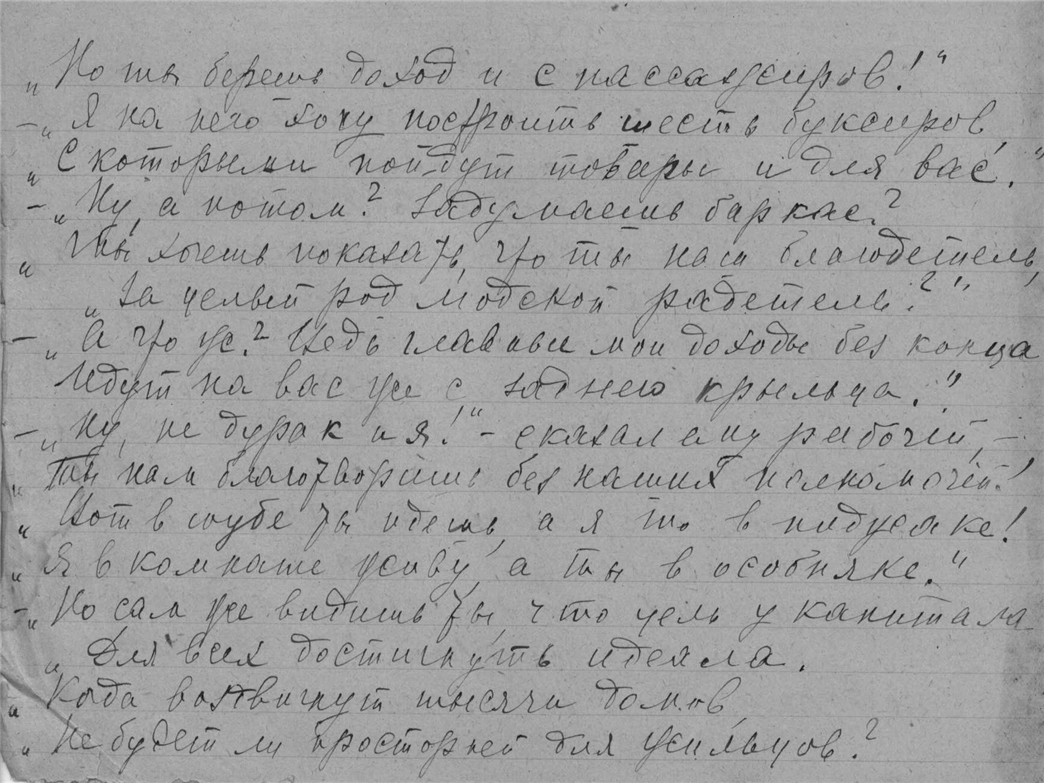 „Но ты берешь доход и с пассажиров!“
–„Я на него хочу построить шесть буксиров,
„С которыми пойдут товары и для вас.“
–„Ну, а потом? Задумаешь баркас?
„Ты хочешь показать, что ты наш благодетель,
„За целый род людской радетель?“
–„А что ж? Ведь главные мои доходы без конца
Идут на вас же с заднего крыльца.“
–„Ну, не дурак и я!“ – сказал ему рабочий, –
„Ты нам благотворишь без наших полномочий!
„Вот в шубе ты идешь, а я то в пиджаке!
„Я в комнате живу, а ты в особняке.“
–„Но сам же видишь ты, что цель у капитала
„Для всех достигнуть идеала.
„Когда воздвигнут тысячи домов,
„Не будет ли просторней для жильцов?